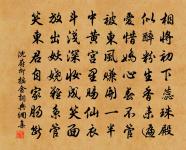 相將初下蕊珠殿
似醉粉生香未遍
愛惜嬌心春不管
被東風賺開一半
中黃宮裏賜仙衣
斗淺深妝成笑面
放出妖嬈難繫管
笑東君自家腸斷
沈蔚柳搖金 詞典網